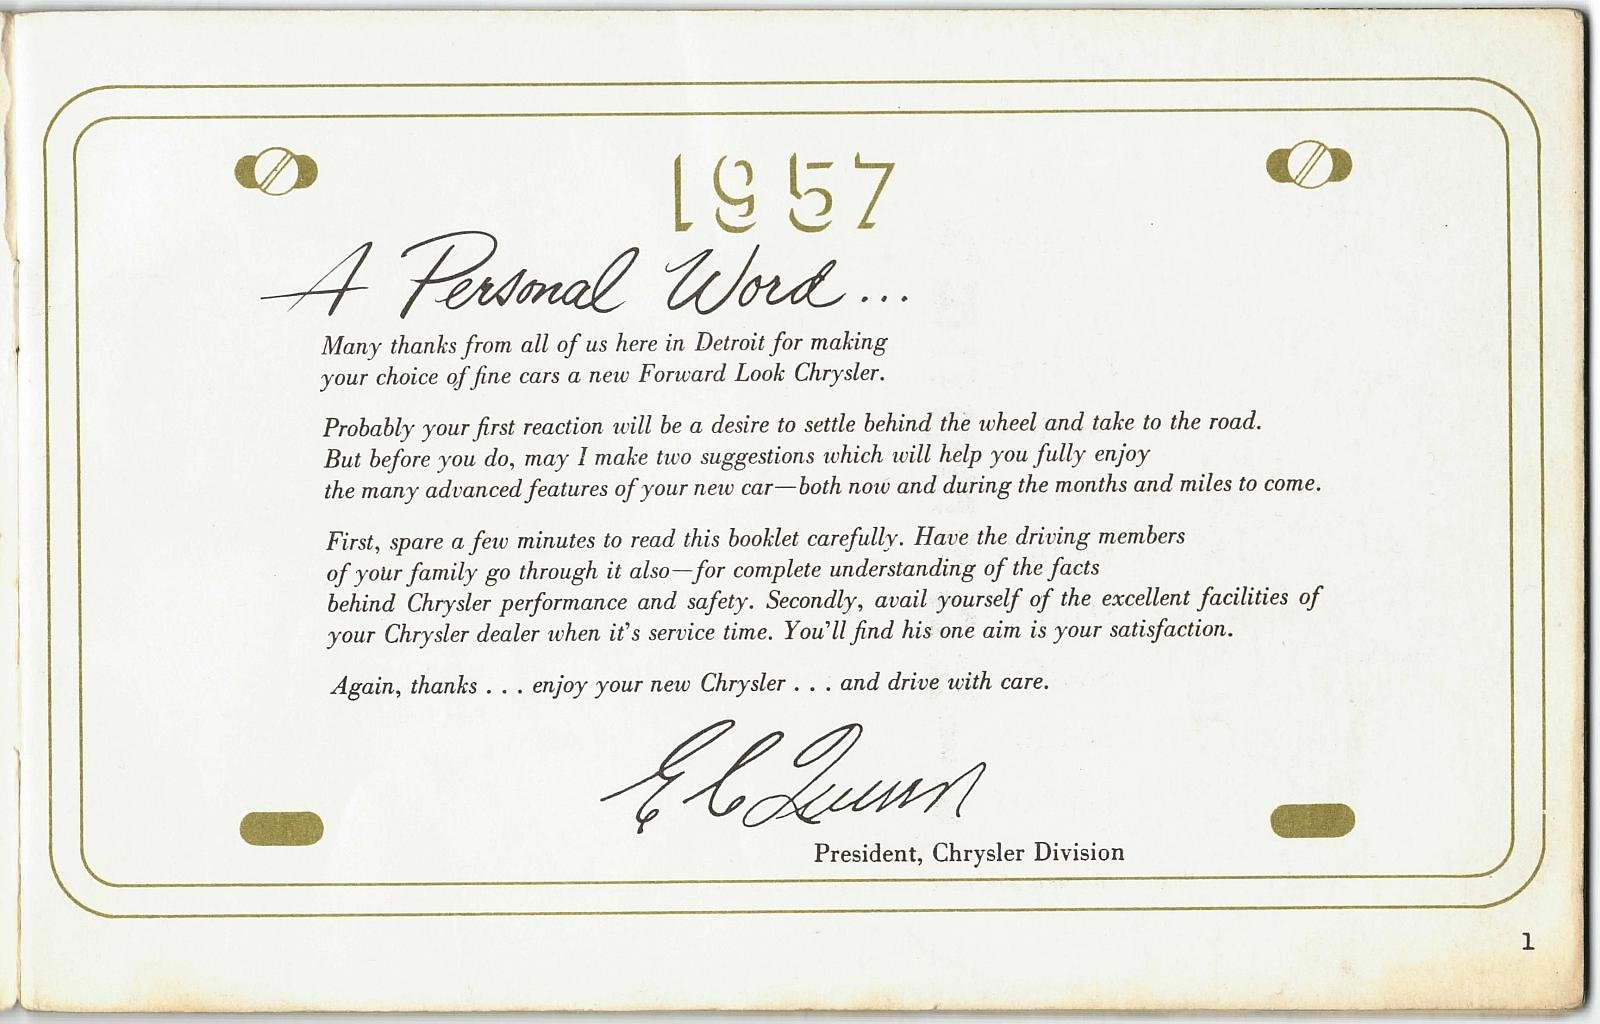 1957
A Personal Word...
Many thanks from all of us here in Detroit for making
your choice of fine cars a new Forward Look Chrysler.
Probably your first reaction will be a desire to settle behind the wheel and take to the road.
But before you do, may I make two suggestions which will help you fully enjoy
the many advanced features of your new car—both now and during the months and miles to come.
First, spare a few minutes to read this booklet carefully. Have the driving members
of your family go through it also—for complete understanding of the facts
behind Chrysler performance and safety. Secondly, avail yourself of the excellent facilities of
your Chrysler dealer when it's service time. You'll find his one aim is your satisfaction.
Again, thanks . . . enjoy your new Chrysler . . . and drive with care.
E C Quinn
President, Chrysler Division
1